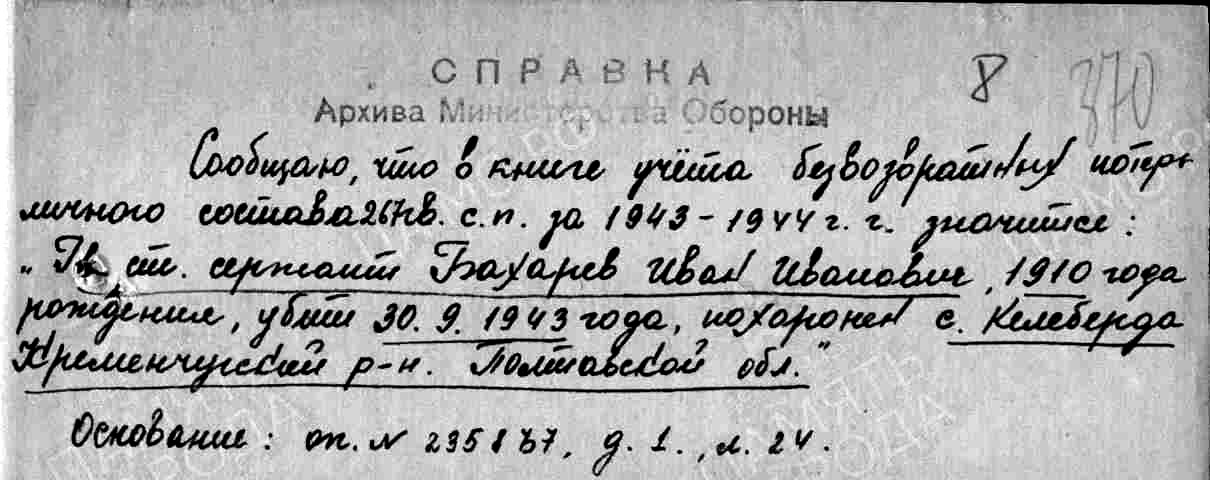 СПРАВКА
8 370
Архива Министерства Обороны
Сообщаю, что в книге учёта безвозвратных потерь
личного состава 267 гв. с.п. за 1943-1944 г. г. значится:
„Гв. ст. сержант Бахарев Иван Иванович, 1910 года
рождения, убит 30.9.1943 года, похоронен с. Келеберда
Кременчугский р-н. Полтавской обл."
Основание: оп. N д. 1., л. 24.